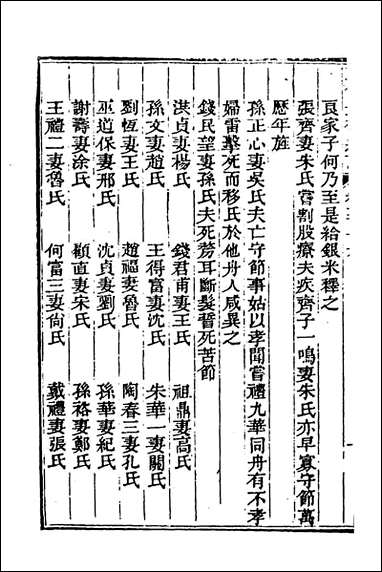 良家子何乃至是給銀米釋之
張齊妻朱氏嘗割股療夫疾齊子一鳴妻朱氏亦早寡守節萬
歷年旌
孫正心妻吳氏夫亡守節事姑以孝聞嘗禮九華同舟有不孝
婦雷擊死而移氏於他舟人咸異之
錢民望妻孫氏夫死剺耳斷髮誓死苦節
洪貞妻楊氏 錢君甫妻王氏 祖鼎妻高氏
孫文妻趙氏 王得富妻沈氏 朱華一妻關氏
劉恆妻王氏 趙福妻魯氏 陶春三妻孔氏
巫道保妻邢氏 沈貞妻劉氏 孫華妻紀氏
謝壽妻涂氏 顧直妻宋氏 孫裕妻鄭氏
王禮二妻魯氏 何富三妻尙氏 戴禮妻張氏